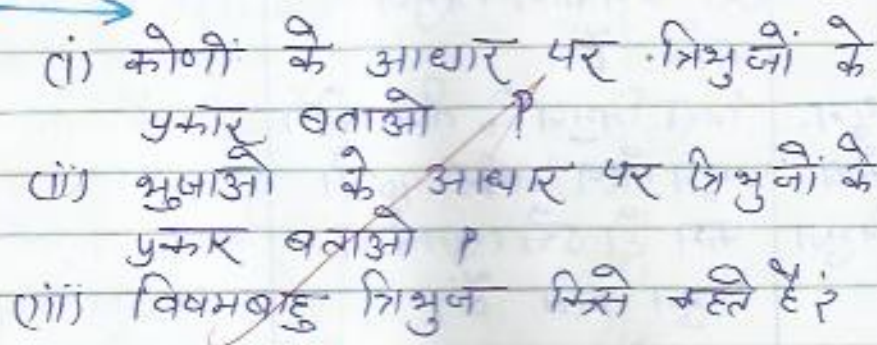 (i) कोणों के आधार पर त्रिभुजों के
प्रकार बताओ ?
(ii) भुजाओ के आधार पर त्रिभुजों के
प्रकार बताओ ?
(iii) विषमबाहु त्रिभुज किसे कहते हैं?